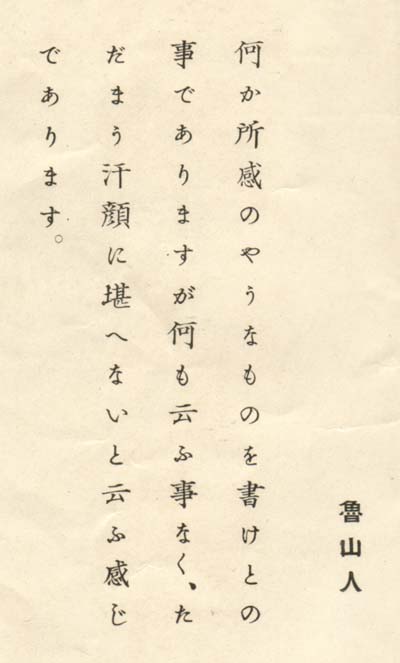 魯山人
何か所感のやうなものを書けとの
事でありますが何も云ふ事なく、た
だまう汗顔に堪へないと云ふ感じ
であります。